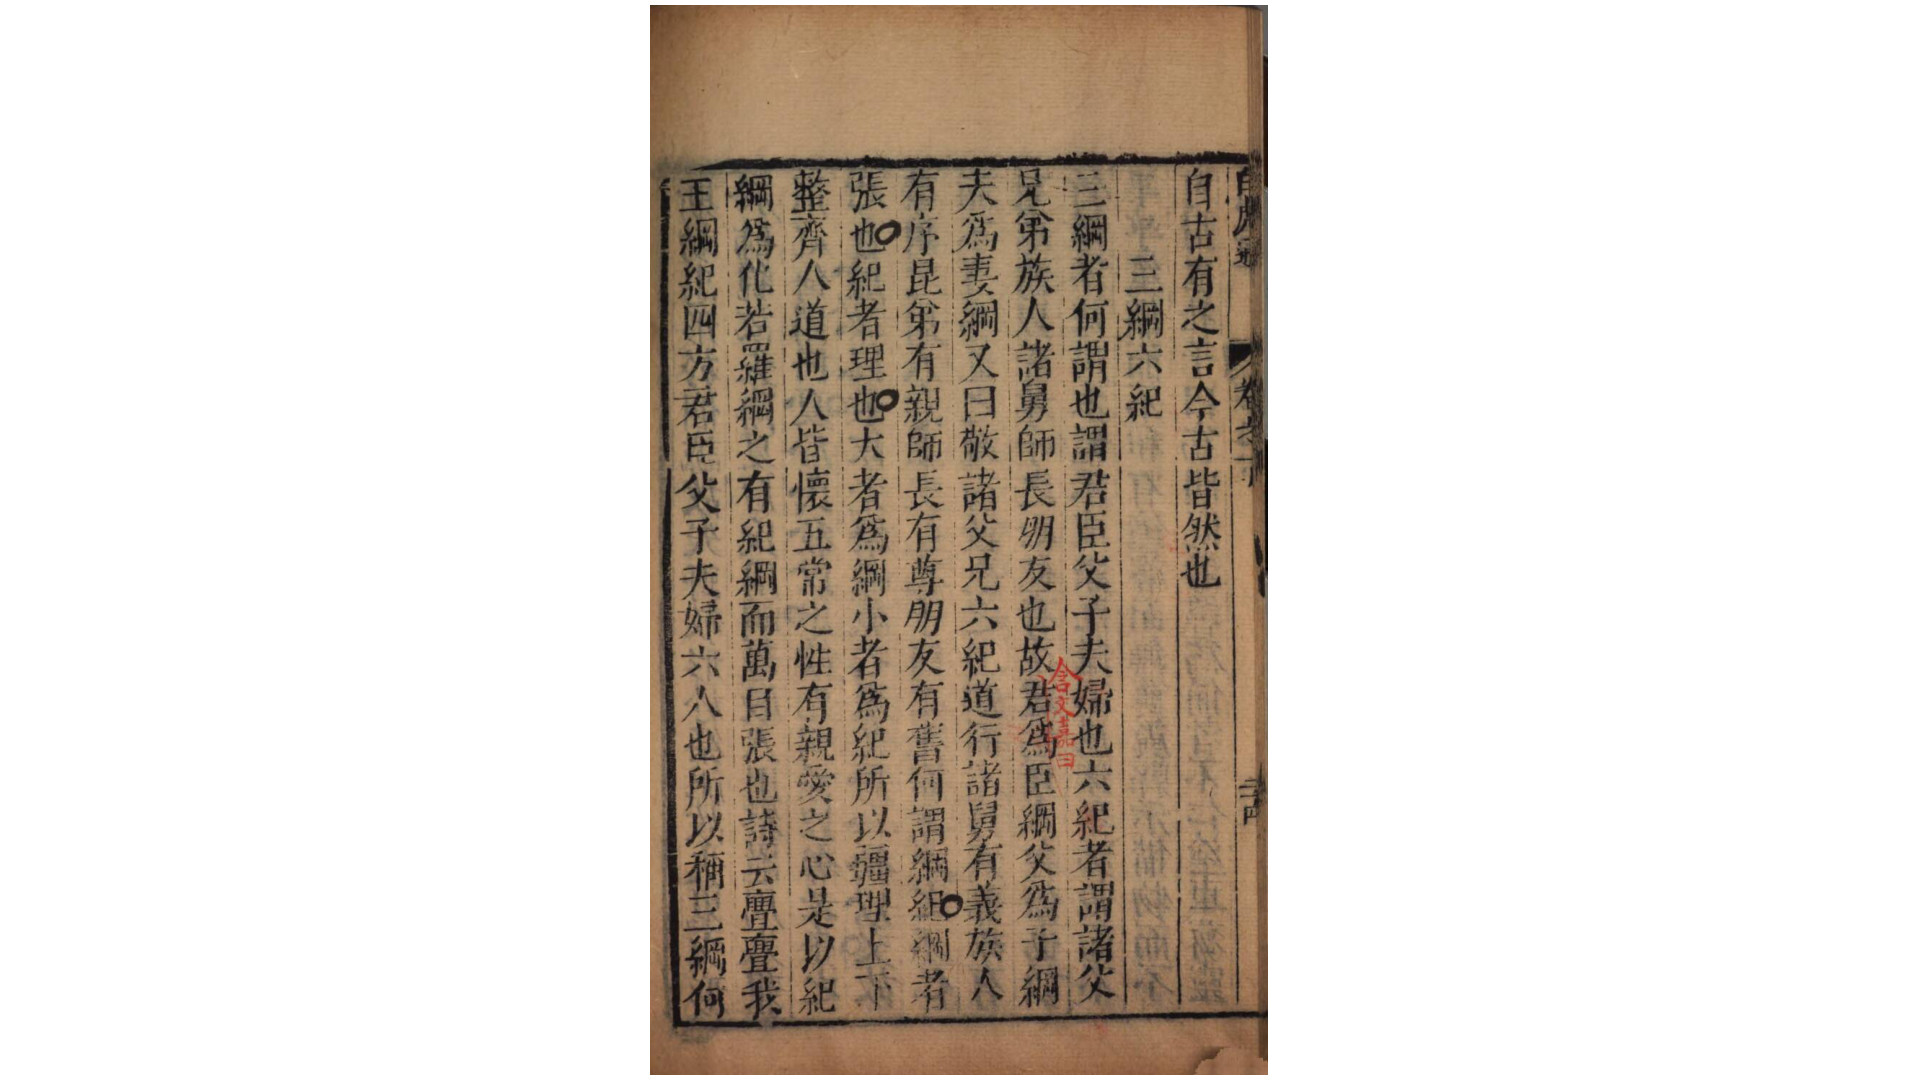 自古有之言今古皆然也
三綱六紀
三綱者何謂也謂君臣父子夫婦也六紀者謂諸父
兄弟族人諸舅師長朋友也故君爲臣綱父爲子綱
含文嘉曰
夫爲妻綱又曰敬諸父兄六紀道行諸舅有義族人
有序昆弟有親師長有尊朋友有舊何謂綱紀綱者
張也紀者理也大者爲綱小者爲紀所以疆理上下
整齊人道也人皆懷五常之性有親愛之心是以紀
綱爲化若羅綱之有紀綱而萬目張也詩云亹亹我
王綱紀四方君臣父子夫婦六人也所以稱三綱何